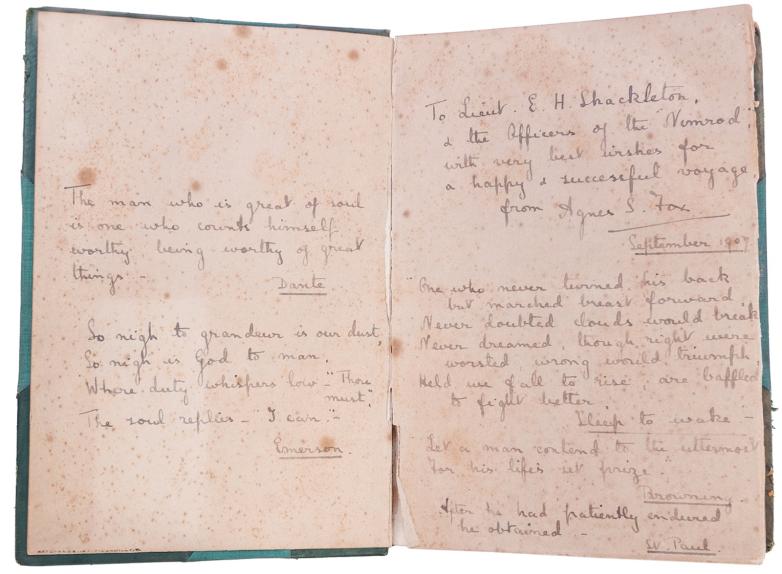 The man who is great of soul
is one who counts himself
worthy being worthy of great
things -
Dante
So nigh to grandeur is our dust,
So nigh is God to man,
Where duty whispers low - "Thou
must,"
The soul replies - "I can." -
Emerson.
To Lieut. E. H. Shackleton,
& the Officers of the Nimrod,
with very best wishes for
a happy & successful voyage
from Agnes S. Fox
September 1907
"One who never turned his back
but marched breast forward,
Never doubted clouds would break
Never dreamed, though right were
worsted, wrong would triumph,
Held we fall to rise, are baffled
to fight better
Sleep to wake -
"Let a man contend to the uttermost
For his life's set prize."
Browning.
After he had patiently endured
he obtained -
St. Paul.